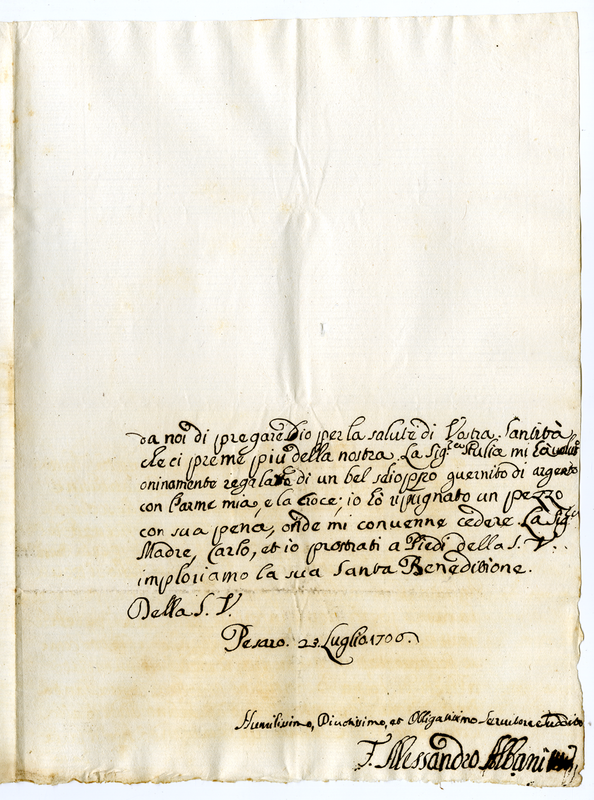 da noi di pregare Dio per la salute di Vostra Santità
che ci preme più della nostra. La Sig.ra Giulia mi hà voluto
oninamente regalato di un bel scioppo guernito di argento
con l'arme mia, e la Croce; io hò ripugnato un pezzo
con sua pena, onde mi convenne cedere. La Sig.ra
Madre, Carlo, et io prostrati a Piedi della S. V.
imploriamo la sua Santa Benedizione.
Della S. V.
Pesaro. 23. Luglio 1706.
Humilissimo, Divotissimo, et Obligatissimo Servitore e Suddito
F. Alessandro Albani